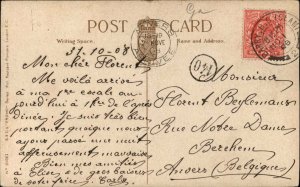 POST CARD
Writing Space.
Name and Address.
31-10-08
Mon cher Florent
Me voilà arrivé
à ma 1re escale au-
jourdhui à 1hr de l'après
dinée. Je suis très bien
portant quoique nous
ayons passé une nuit
affreusement mauvaise.
Bien mes amitiés
à Elise, & de gros baisers
de votre frère
Monsieur
Florent Beylemans
Rue Notre Dame
Berchem
Anvers (Belgique)